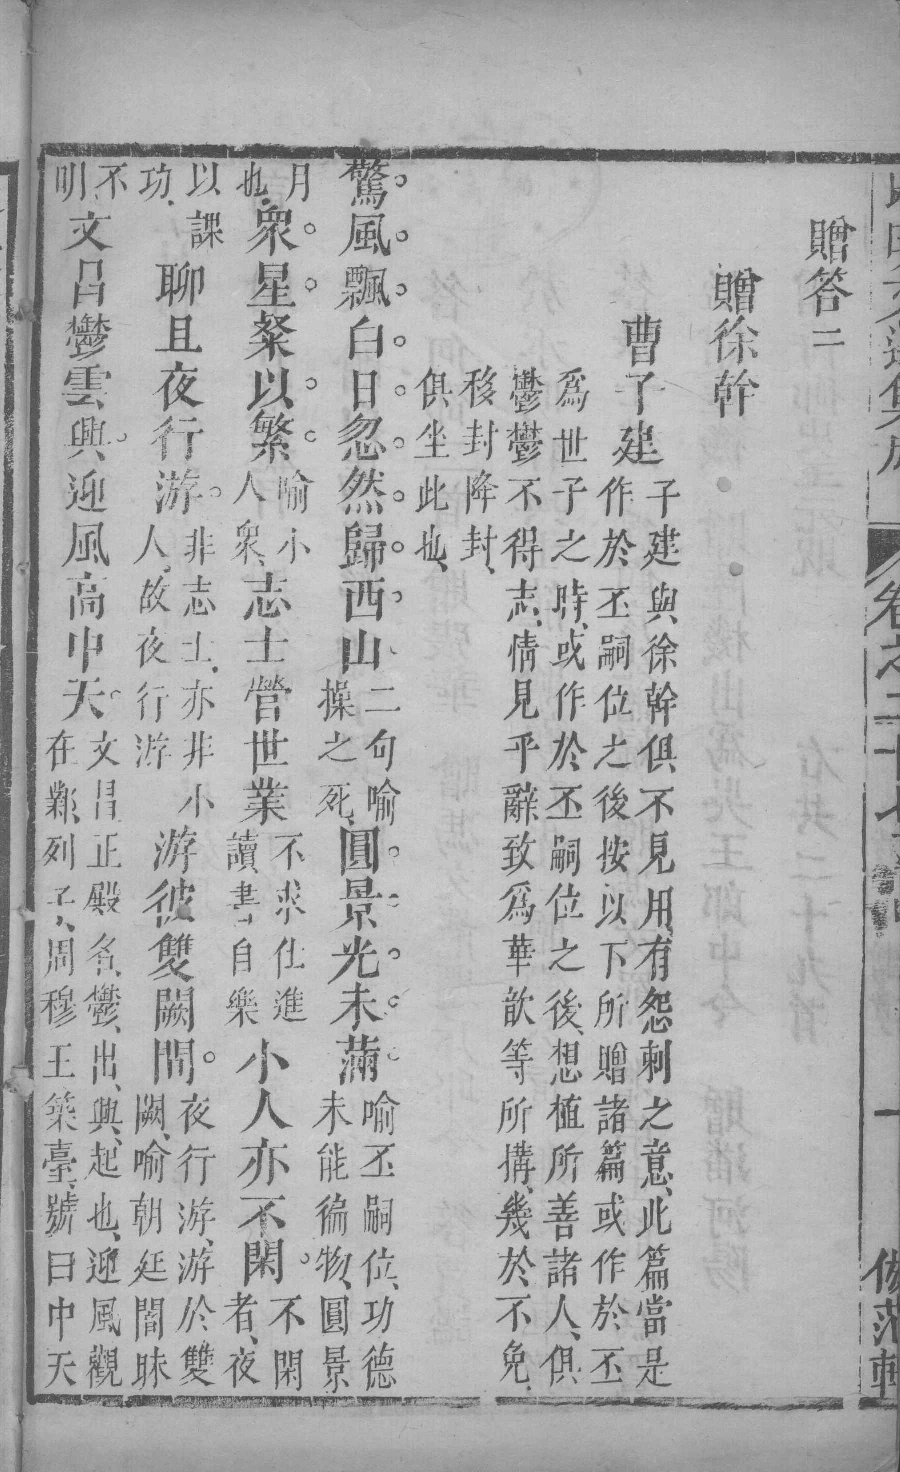 昭明文選集成 卷之二十七 贈答 一 倣范軒
贈答二
贈徐幹
曹子建
子建與徐幹俱不見用、有怨刺之意、此篇當是
作於丕嗣位之後、按以下所贈諸篇、或作於丕
為世子之時、或作於丕嗣位之後、想植所善諸人、俱
鬱鬱不得志、情見乎辭、致為華歆等所搆、幾於不免、
移封降封、
俱坐此也、
驚風飄白日。忽然歸西山。
二句喻
操之死、
圓景光未滿。
喻丕嗣位、功德
未能徧物、圓景
月
也、
衆星粲以繁。
喻小
人衆、
志士營世業
不求仕進
讀書自樂
小人亦不閑。
不閑
者、夜
以課
功、
聊且夜行游。
非志士、亦非小
人、故夜行游
游彼雙闕間。
夜行游、游於雙
闕、喻朝廷闇昧
不
明
文昌鬱雲興。迎風高中天。
文昌正殿名、鬱、出、興、起也、迎風觀
在鄴、列子、周穆王築臺、號曰中天